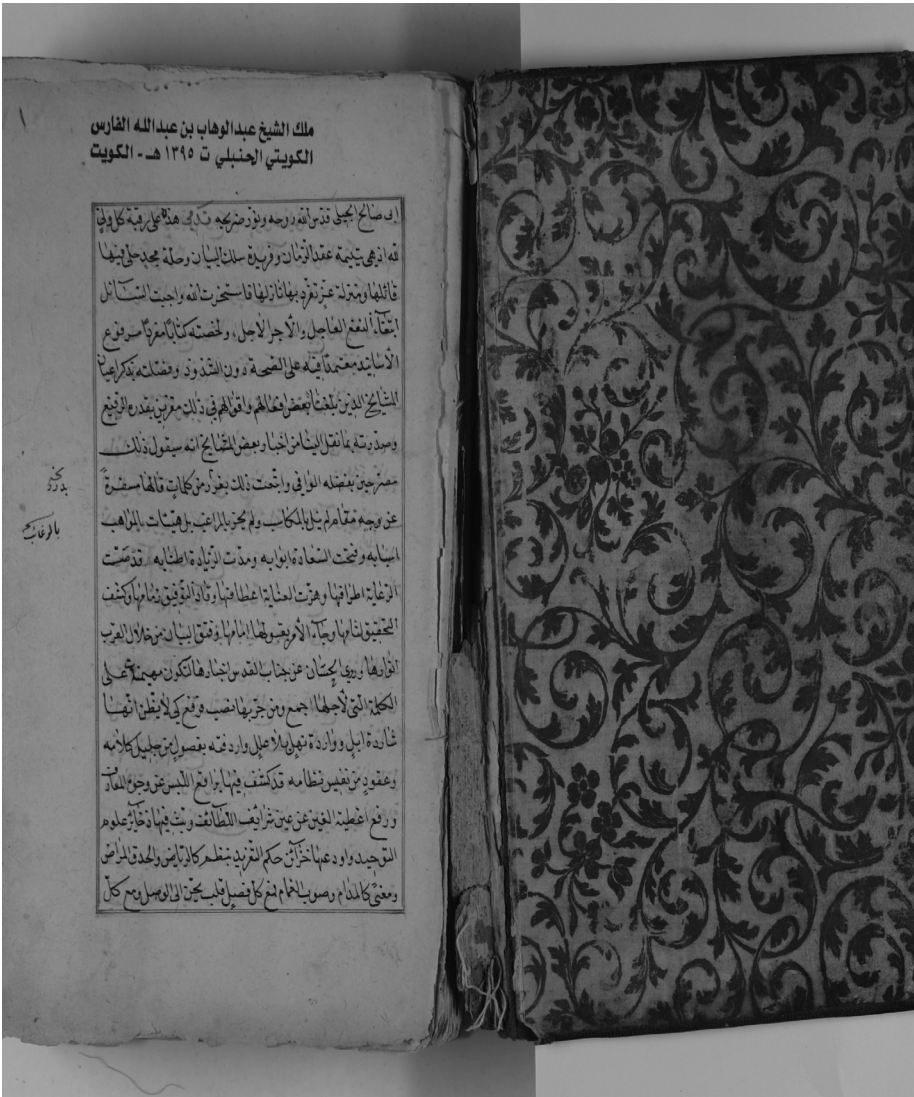 ١
ملك الشيخ عبدالوهاب بن عبدالله الفارس
الكويتي الحنبلي ت ١٣٩٥ هـ - الكويت
ابى صالح الجيلى قدس الله روحه ونور ضريحه قدمى هذه على رقبة كل ولى
لله اذ هى يتيمة عقد الزمان وفريدة سلك البيان وحلة مجد حلى فيها
قائلها ومنزلة عز تفرد بها نازلها فاستخرت الله واجبت السائل
ابتغاء النفع العاجل والاجر الاجل ولخصته كتابا مفردا مرفوع
الأسانيد معتمدا فيه على الصحة دون الشذوذ وفصلته بذكر اعيان
المشايخ الذين بلغنا بعض افعالهم واقوالهم فى ذلك مقرين بقدره الرفيع
وصدرته بما نقل الينا من اخبار بعض المشايخ انه سيقول ذلك
مصرحين بفضله الوافى واتبعت ذلك من كلمات قالها مسفرة
عن وجه مقام لم ينل بالمكاسب ولم يحز بالمراغب بل هيئات بالمواهب
اسبابه وفتحت السعادة ابوابه ومدت الزيادة اطنابه قد ضمت
الرعاية اطرافها وهزت العناية اعطافها وقاد التوفيق زمامها وكشف
التحقيق لثامها وجاء الأمر بعبولها امامها وفتق البيان من خلال الغرب
انوارها وروى الجنان عن جناب القدس اخبارها لتكون مهيمنة على
الكلمة التى لاجلها اجمع ومن جربها نصب ورفع كى لا يظن انها
شاردة ابل وواردة نهل بلا علل واردفته بفصول من جليل كلامه
وعقود من نفيس نظامه قد كشف فيها براقع اللبس عن وجوه المعارف
ورفع اغطية الغين عن عين شرائف اللطائف وبث فيها ذخائر علوم
التوحيد واودعها خزائن حكم التفريد بنظم كالرياض والحدق المراض
ومعنى كالمدام وصوب الغمام فى كل فصل قلب يحن الى الوصل ومع كل
بالرغائب